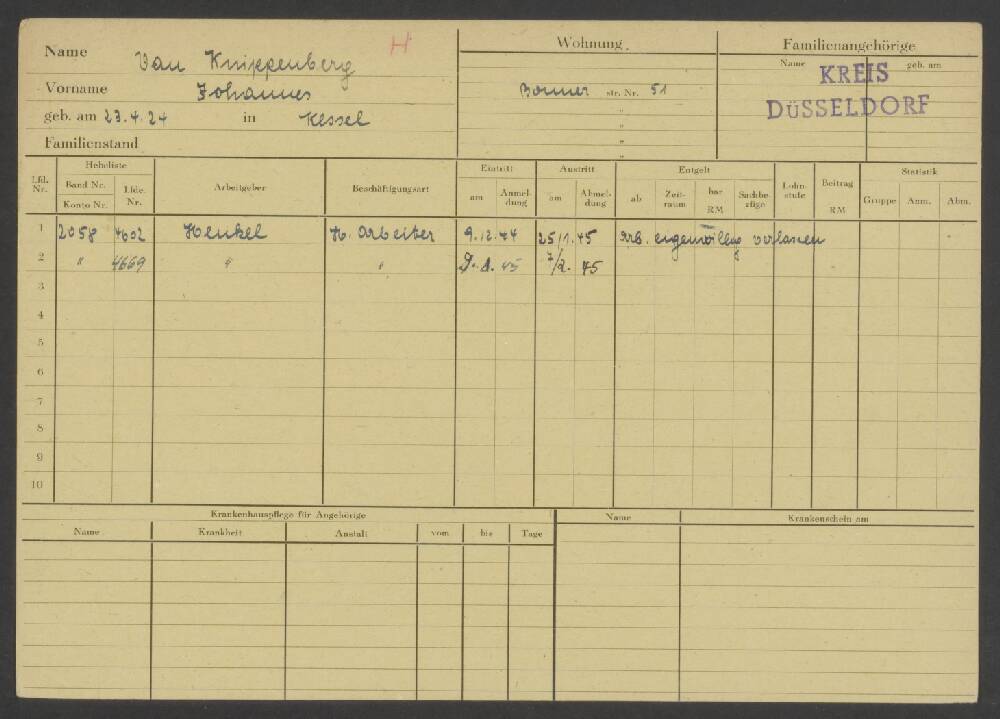 Name Van Knippenberg H
Vorname Johannes
geb. am 23.4.24 in Kessel
Familienstand
Wohnung.
Bonner str. Nr. 51
"
"
"
Familienangehörige
Name geb. am
KREIS
DÜSSELDORF
Lfd. Nr.
Hebeliste
Band Nr. Lfde. Nr.
Konto Nr.
Arbeitgeber
Beschäftigungsart
Eintritt
am Anmeldung
Austritt
am Abmeldung
Entgelt
ab Zeitraum bar RM Sachbezüge
Lohnstufe
Beitrag RM
Statistik
Gruppe Anm. Abm.
1 2058 4602 Henkel H. Arbeiter 9.12.44 25/1.45 Arb. eigenwillig verlassen
2 " 4669 " " 9.1.45 7/2.45
3
4
5
6
7
8
9
10
Krankenhauspflege für Angehörige
Name Krankheit Anstalt vom bis Tage
Name Krankenschein am